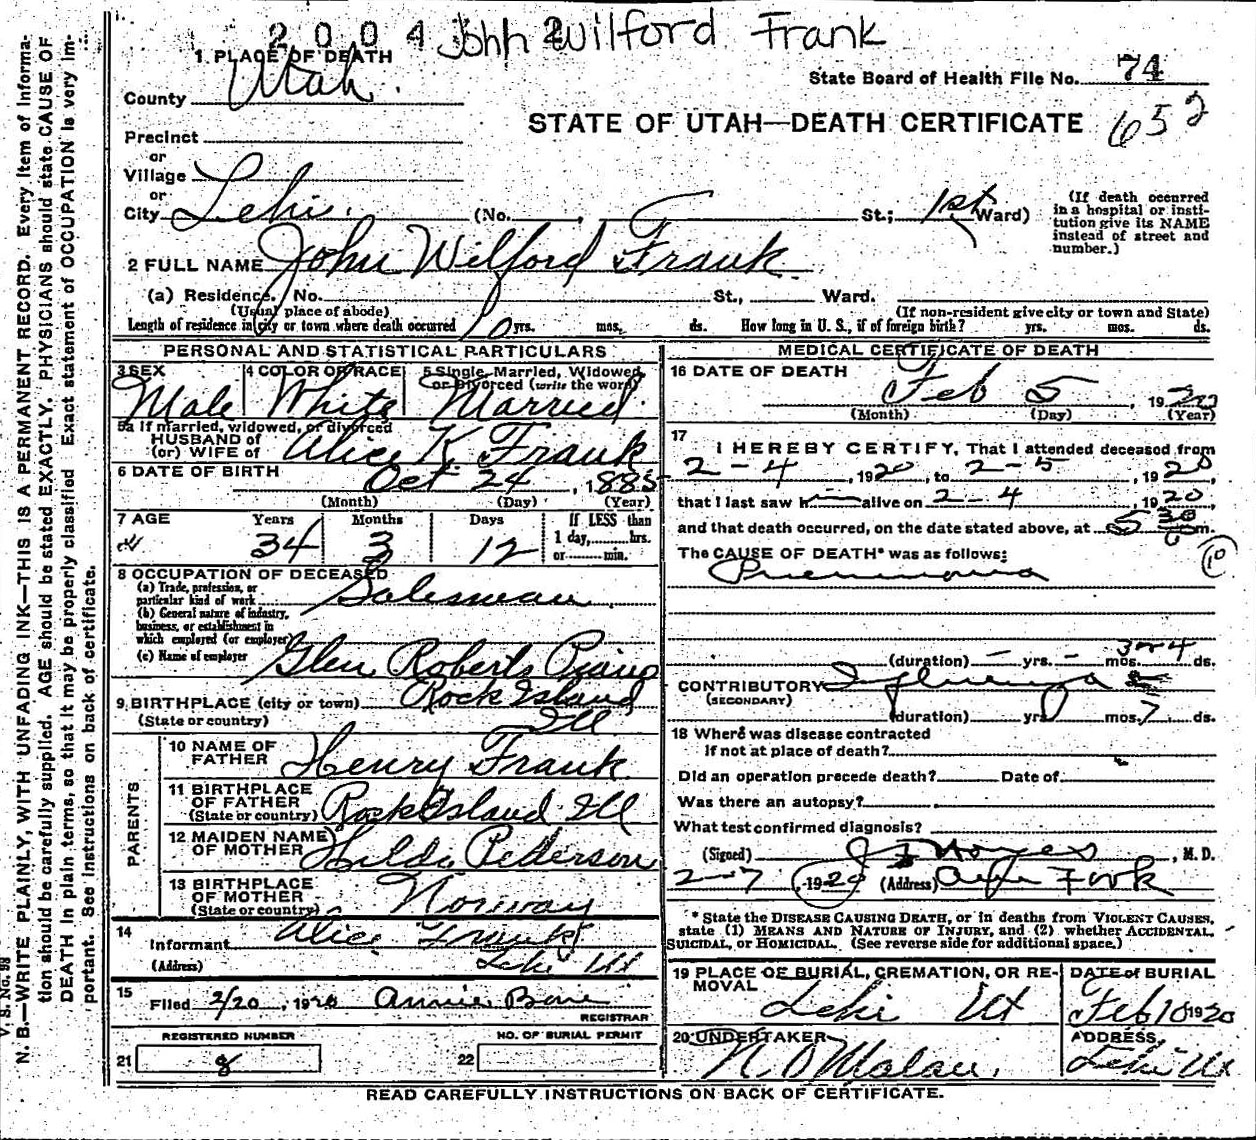 2 0 0 4 2
John Wilford Frank
1 PLACE OF DEATH
State Board of Health File No. 74
County Utah.
STATE OF UTAH—DEATH CERTIFICATE 652
Precinct
or
Village
or
City Lehi. (No. , St.; 1st Ward)
(If death occurred in a hospital or insti-
tution give its NAME
instead of street and
number.)
2 FULL NAME John Wilford Frank
(a) Residence. No. St., Ward.
(Usual place of abode) (If non-resident give city or town and State)
Length of residence in city or town where death occurred 10 yrs. mos. ds. How long in U. S., if of foreign birth? yrs. mos. ds.
PERSONAL AND STATISTICAL PARTICULARS
3 SEX 4 COLOR OR RACE 5 Single, Married, Widowed
or Divorced (write the word)
Male White Married
5a If married, widowed, or divorced
HUSBAND of
(or) WIFE of Alice K Frank
6 DATE OF BIRTH Oct 24, 1885
(Month) (Day) (Year)
7 AGE Years Months Days If LESS than
1 day, hrs.
or min.
34 3 12
8 OCCUPATION OF DECEASED
(a) Trade, profession, or
particular kind of work Salesman
(b) General nature of industry,
business, or establishment in
which employed (or employer)
(c) Name of employer Glen Roberts Piano
9 BIRTHPLACE (city or town) Rock Island
(State or country) Ill
PARENTS
10 NAME OF
FATHER Henry Frank
11 BIRTHPLACE
OF FATHER
(State or country) Rock Island Ill
12 MAIDEN NAME
OF MOTHER Hilda Pederson
13 BIRTHPLACE
OF MOTHER
(State or country) Norway
14
Informant Alice Frank
(Address) Lehi Ut
15 Filed 2/20, 1920 Annie Bone
REGISTRAR
REGISTERED NUMBER NO. OF BURIAL PERMIT
21 8 22
MEDICAL CERTIFICATE OF DEATH
16 DATE OF DEATH Feb 5, 1920
(Month) (Day) (Year)
17
I HEREBY CERTIFY, That I attended deceased from
2-4, 1920, to 2-5, 1920
that I last saw h alive on 2-4 1920
and that death occurred, on the date stated above, at 5 30 m.
The CAUSE OF DEATH* was as follows: 10
Pneumonia
(duration) – yrs. – mos. 3 or 4 ds.
CONTRIBUTORY Influenza
(SECONDARY)
(duration) yrs mos. 7 ds.
18 Where was disease contracted
if not at place of death?
Did an operation precede death? Date of
Was there an autopsy?
What test confirmed diagnosis?
(Signed) Noyes, M. D.
2-7, 1920 (Address) Fork
* State the DISEASE CAUSING DEATH, or in deaths from VIOLENT CAUSES,
state (1) MEANS AND NATURE OF INJURY, and (2) whether ACCIDENTAL,
SUICIDAL, or HOMICIDAL. (See reverse side for additional space.)
19 PLACE OF BURIAL, CREMATION, OR RE-
MOVAL
Lehi Ut
DATE of BURIAL
Feb 10 1920
20 UNDERTAKER
N. O Malan.
ADDRESS
Lehi Ut
READ CAREFULLY INSTRUCTIONS ON BACK OF CERTIFICATE.
V. S. No. 98
N. B.—WRITE PLAINLY, WITH UNFADING INK—THIS IS A PERMANENT RECORD. Every item of Informa-
tion should be carefully supplied. AGE should be stated EXACTLY. PHYSICIANS should state CAUSE OF
DEATH in plain terms, so that it may be properly classified Exact statement of OCCUPATION is very im-
portant. See instructions on back of certificate.